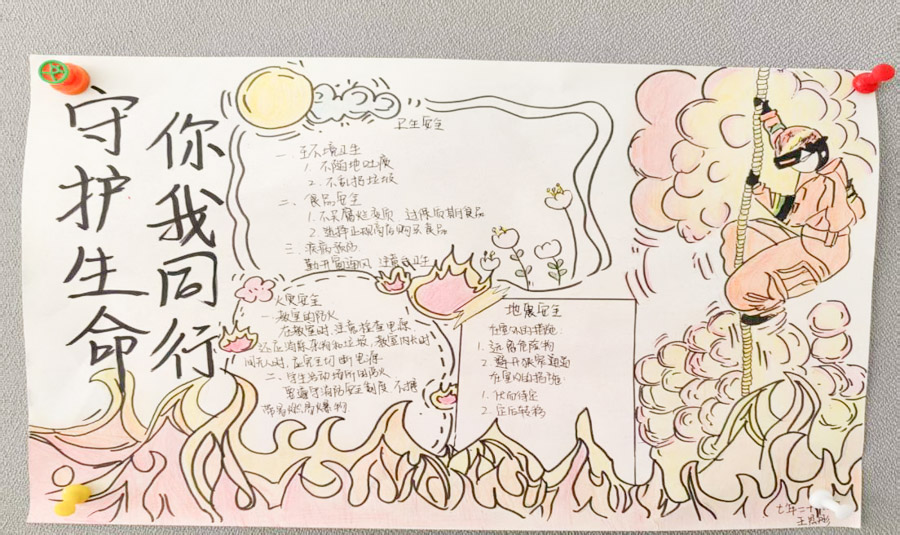 守护生命
你我同行
卫生安全
一.环境卫生
1.不随地吐痰
2.不乱扔垃圾
二.食品安全
1.不买腐烂变质 过保质期食品
2.选择正规商店购买食品
三.疾病预防
勤开窗通风 注意卫生
火灾安全
一.教室的防火
在教室时,注意检查电源
还应消除杂物和垃圾,教室内长时
间无人时,应
切断电源
二.学生活动场所的防火
要遵守消防安全制度 不携
带易燃易爆物
地震安全
在室外的措施:
1.远离危险物
2.避开狭窄
在室内的措施:
1.伏而待定
2.震后转移